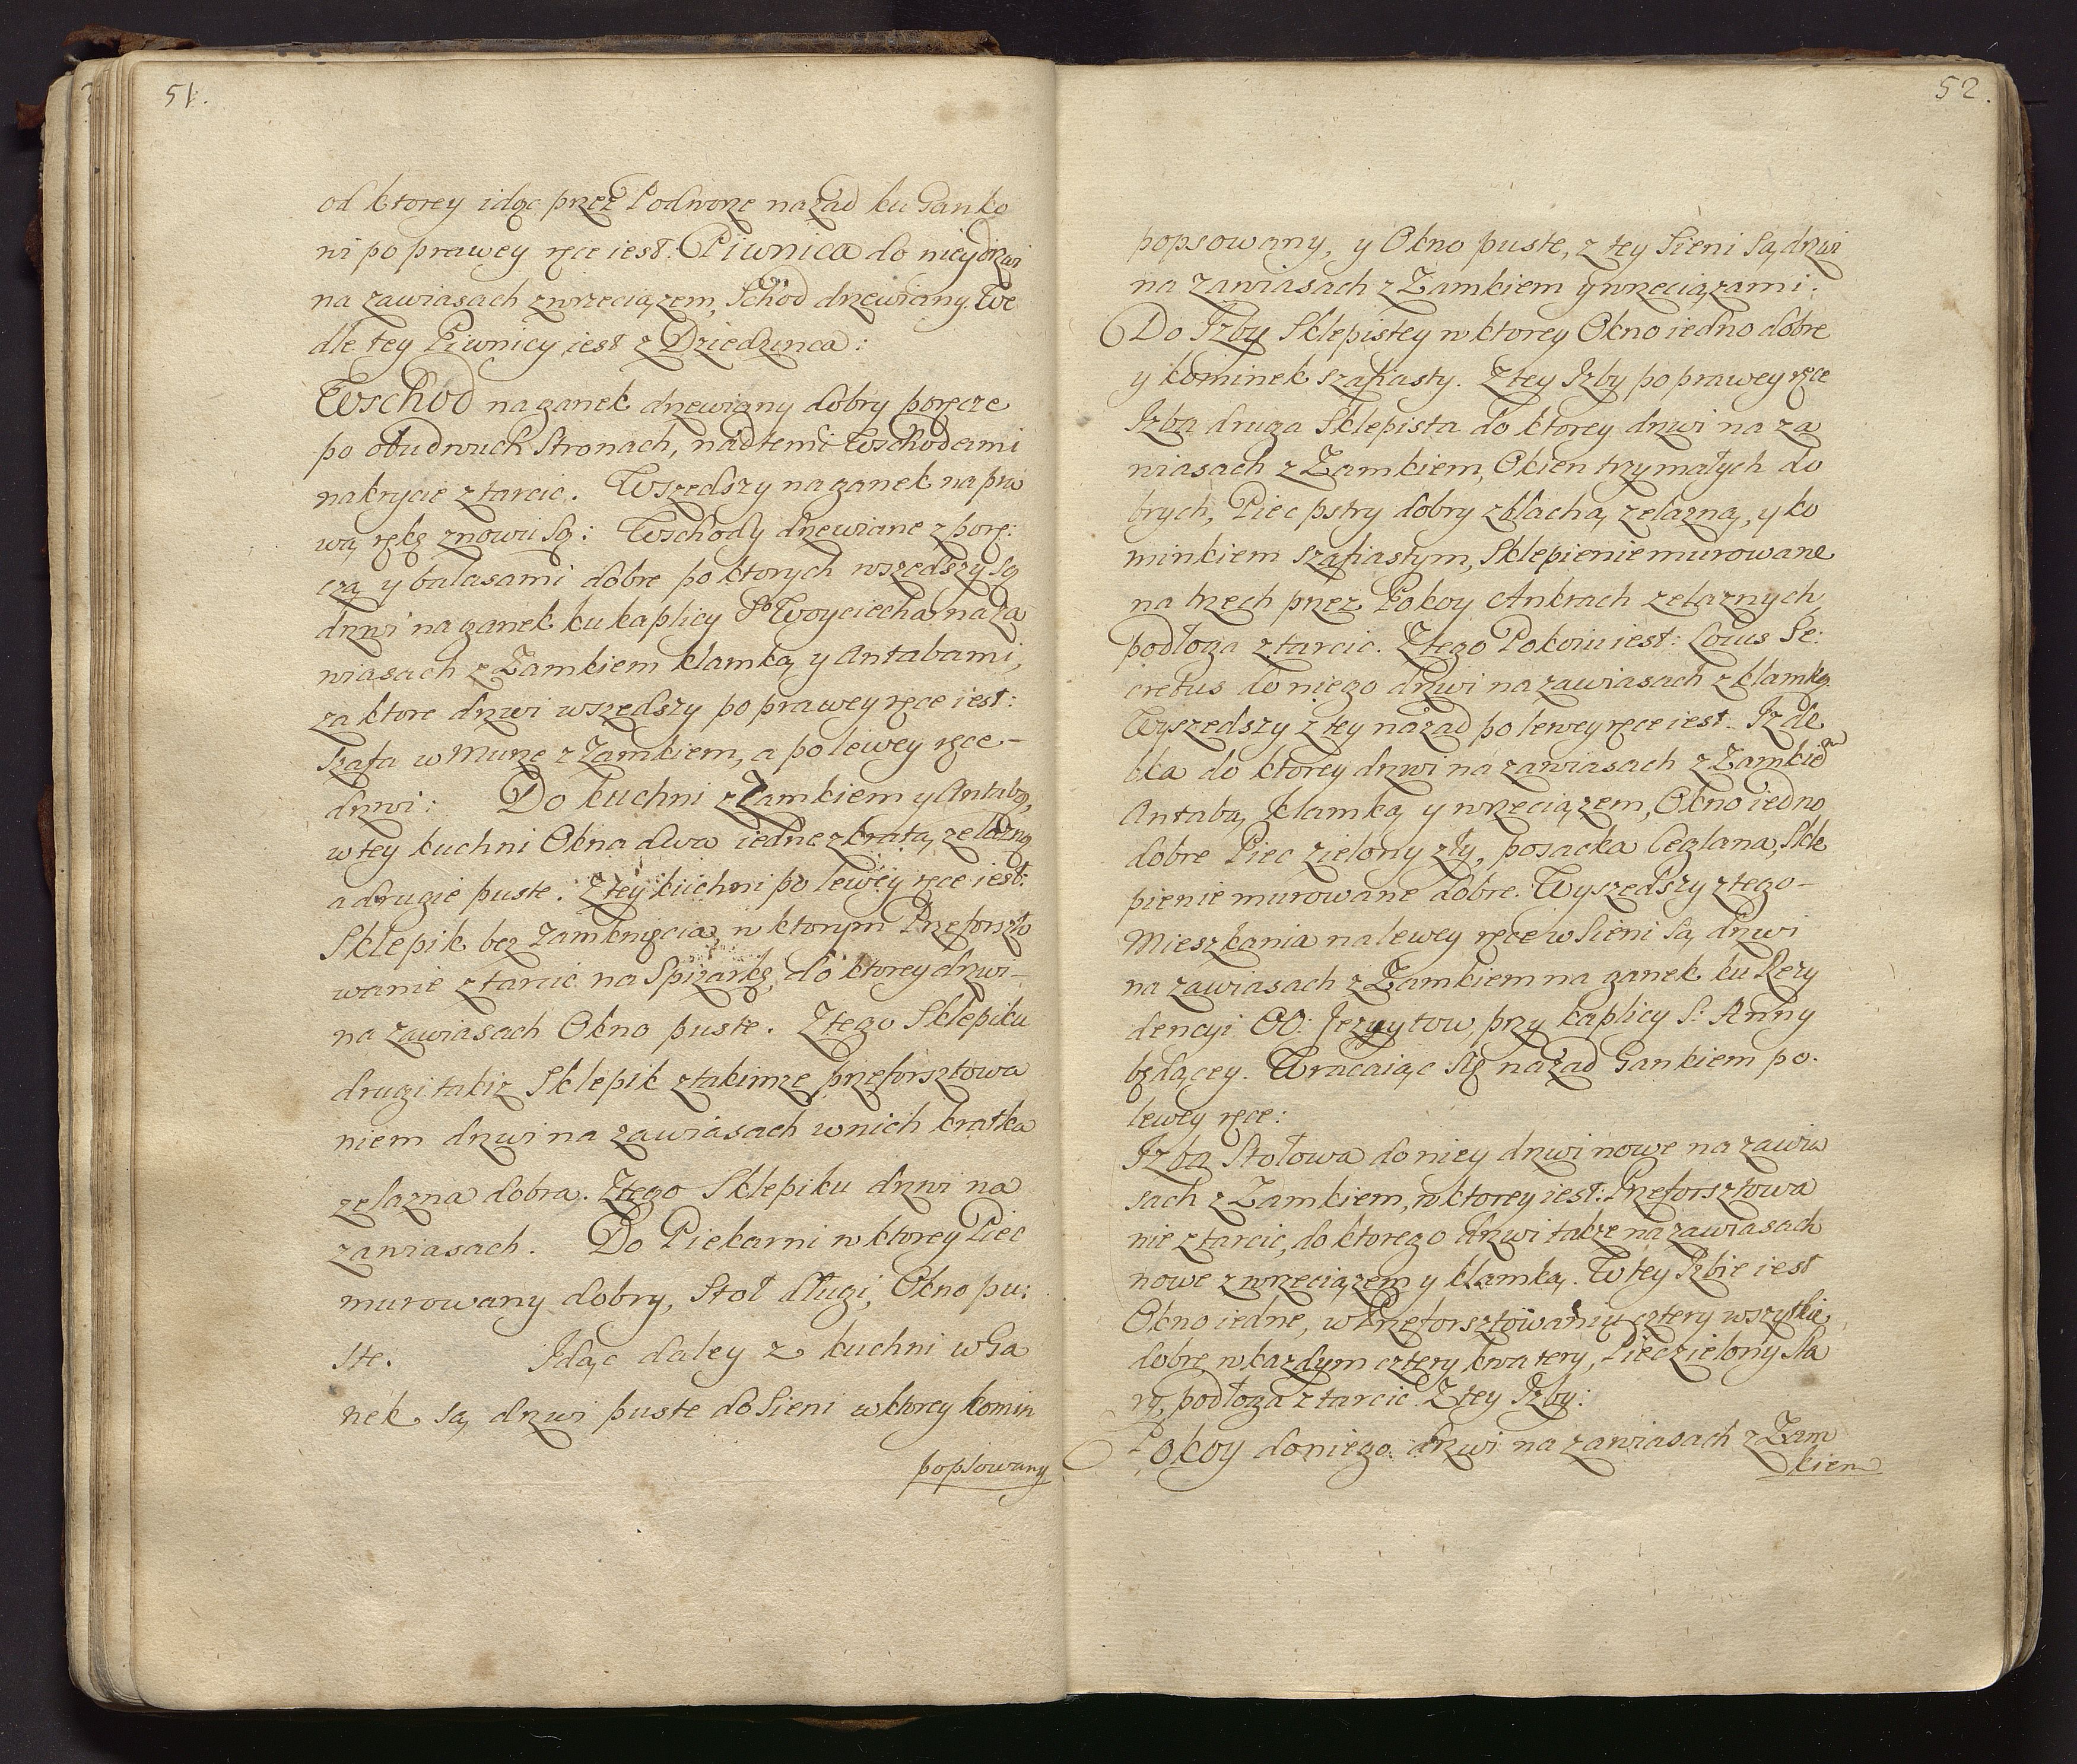 51.
od ktorey idąc przez Podworze nazad ku Ganko
wi po prawey ręce iest: Piwnica do niey drzwi
na zawiasach z wrzeciązem, Schod drzewiany. We
dle tey Piwnicy iest z Dziedzinca:
Wschod na ganek drzewiany dobry poręcze
po obudwuch Stronach, nad temi Wschodami
nakrycie z tarcic. Wszedszy na ganek na pra
wą rękę znowu są: Wschody drzewiane z porę:
czą y balasami dobre po ktorych wszedszy są
drzwi na ganek ku kaplicy So Woyciecha, na za
wiasach z Zamkiem klamką y Antabami,
za ktore drzwi wszedszy po prawey ręce iest:
Szafa w Murze z Zamkiem, a po lewey ręce –
drzwi: Do kuchni z Zamkiem y Antabą,
w tey kuchni Okna dwa iedne z kratą zelazną
a drugie puste. Z tey kuchni po lewey ręce iest:
Sklepik bez Zamknięcia, w ktorym Przeforszto
wanie z tarcic na Spizarkę, do ktorey drzwi –
na zawiasach Okno puste. Z tego Sklepiku
drugi takiz Sklepik z takimze przeforsztowa
niem drzwi na zawiasach w nich kratka
zelazna dobra. Z tego Sklepiku drzwi na
zawiasach. Do Piekarni w ktorey Piec
murowany dobry, Stoł długi, Okno pu:
ste. Idąc daley z kuchni w Ga
nek są, drzwi puste do Sieni w ktorey komin
popsowany
52.
popsowany, y Okno puste, z tey Sieni Są drzwi
na zawiasach z Zamkiem y wrzeciązami:
Do Izby Sklepistey w ktorey Okno iedno dobre
y kominek szafiasty. Z tey Izby po prawey ręce
Izba druga Sklepista do ktorey drzwi na za
wiasach z Zamkiem, Okien trzy małych do
brych, Piec pstry dobry z blachą zelazną, y ko
minkiem szafiastym, Sklepienie murowane
na trzech przez Pokoy Ankrach zelaznych,
podłoga z tarcic. Z tego Pokoiu iest: Locus Se:
cretus do niego drzwi na zawiasach z klamką.
Wyszedszy z tey nazad po lewey ręce iest Izde
bka do ktorey drzwi na zawiasach z Zamkiem
Antabą, klamką y wrzeciązem, Okno iedno
dobre Piec zielony zły, posacka Ceglana, Skle
pienie murowane dobre. Wyszedszy z tego –
Mieszkania na lewey ręce w Sieni Są drzwi
na zawiasach z Zamkiem na ganek ku Rezy
dencyi OO: Jezuytow, przy kaplicy S: Anny
będącey. Wracaiąc się nazad Gankiem po.
lewey ręce:
Izba Stołowa do niey drzwi nowe na zawia
sach z Zamkiem, w ktorey iest: Przeforsztowa
nie z tarcic, do ktorego drzwi takze na zawiasach
nowe z wrzeciązem y klamką. W tey Izbie iest
Okno iedne, w Przeforsztowaniu cztery wszytkie
dobre, w kazdym cztery kwatery, Piec zielony sta
ry, podłoga z tarcic. Z tey Izby:
Pokoy do niego drzwi na zawiasach z Zam
kiem